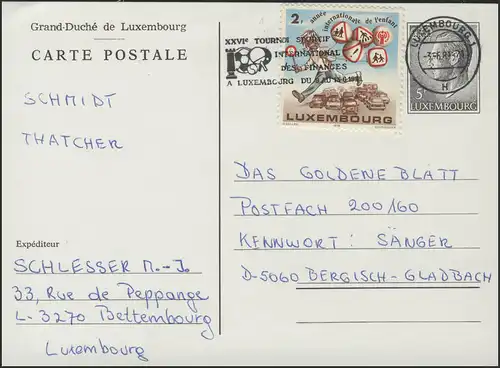 Grand-Duché de Luxembourg
CARTE POSTALE
SCHMIDT
THATCHER
Expéditeur
SCHLESSER M.-J.
33, Rue de Peppange
L-3270 Bettembourg
Luxembourg
XXVIe TOURNOI SPORTIF
INTERNATIONAL
DES FINANCES
A LUXEMBOURG DU
2F
année
internationale de l'enfant
LUXEMBOURG
LUXEMBOURG
H
5F
LUXEMBOURG
DAS GOLDENE BLATT
POSTFACH 200160
KENNWORT: SÄNGER
D-5060 BERGISCH-GLADBACH